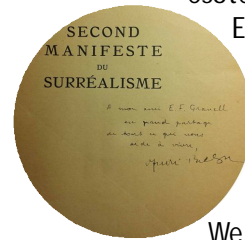 SECOND
MANIFESTE
DU
SURRÉALISME
A mon ami E.F. Granell
en grand partage
de tout ce qui nous
aide à vivre,
André Breton
E
We